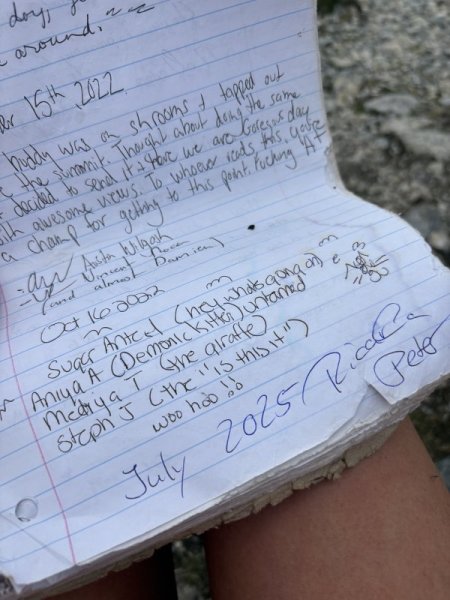 day,
around.
15th 2022
buddy was on shrooms + tapped out
the summit. Thought about doing the same
decided to send it + Here we are Gorgeous day
with awesome views. To whoever reads this, you're
a champ for getting to this point. Fucking "A"!
(and almost Damien)
Oct 16 2022
Suger Ante (hey whats going on)
Aniya A (Demonic Kitty) untamed
Medriya T (the giraffe)
Steph J (the "is this it")
woo hoo!!
July 2025
Peter